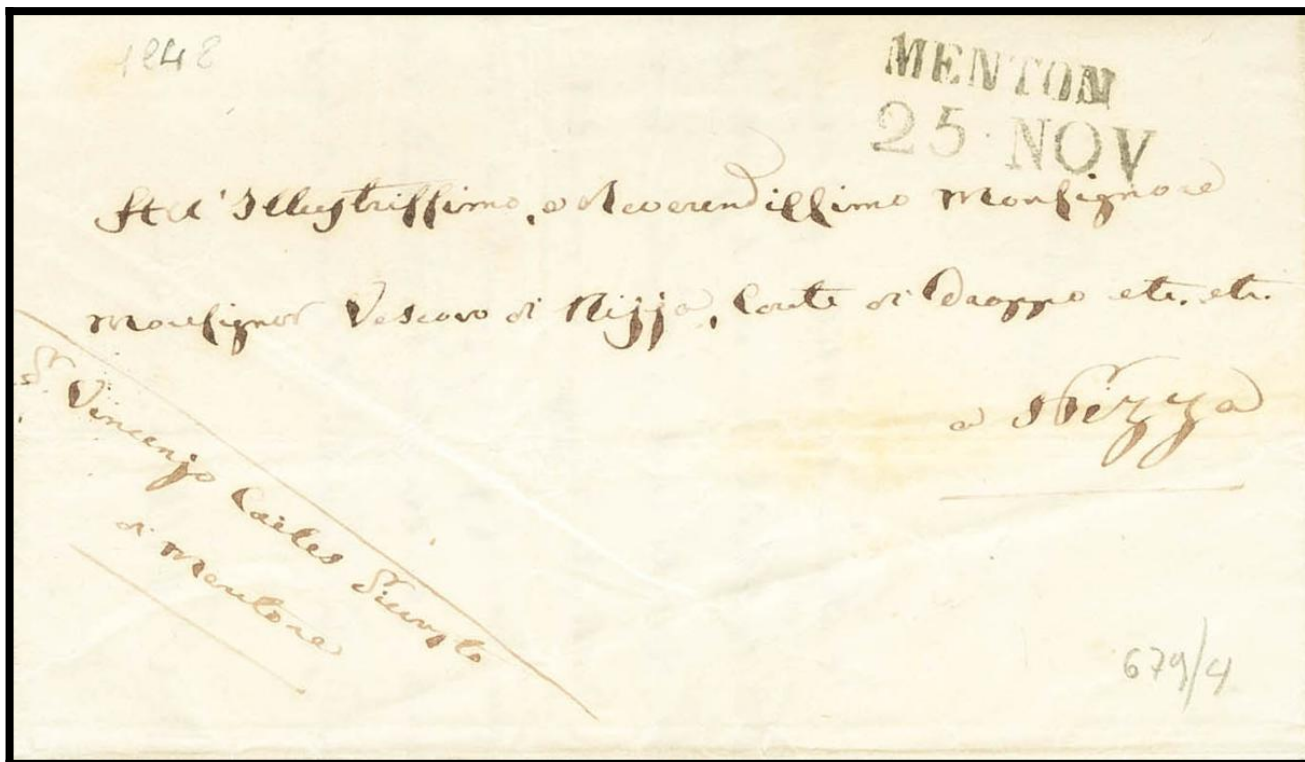 1848
MENTON
25 NOV
All'Illustrissimo, e Reverendissimo Monsignore
Monsignor Vescovo di Nizza, Conte di Drappo etc. etc.
a Nizza
Vincenzo
di Mentone
679/4